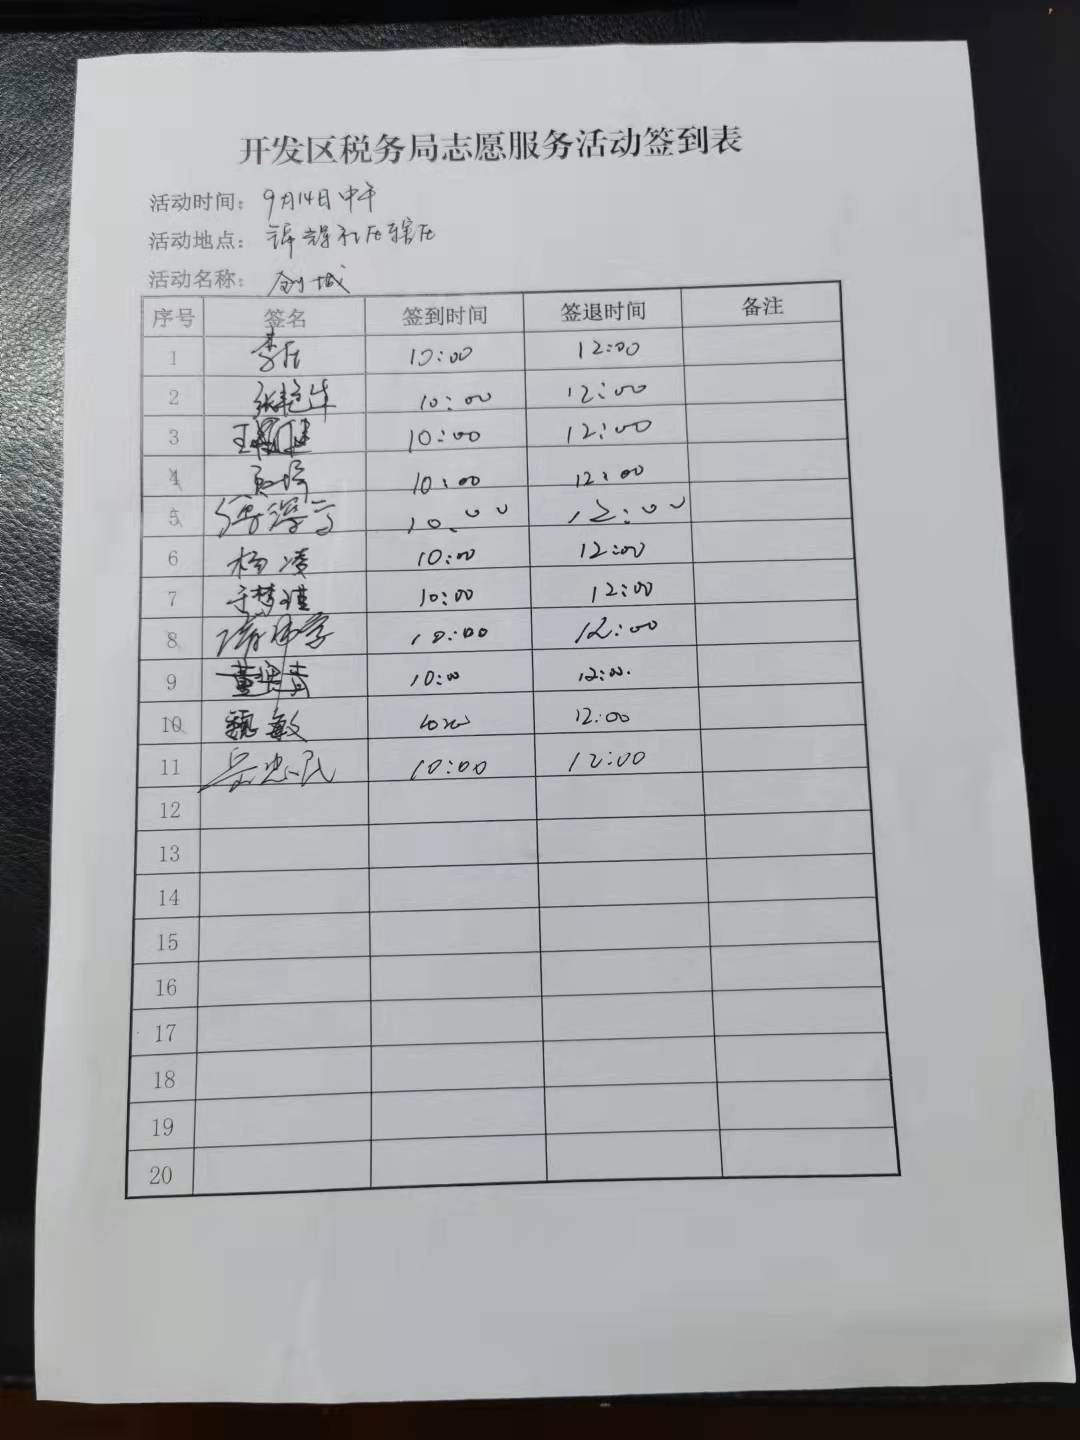 开发区税务局志愿服务活动签到表
活动时间：9月14日中午
活动地点：锦辉社区辖区
活动名称：创城
序号 签名 签到时间 签退时间 备注
1 10:00 12:00
2 张艳华 10:00 12:00
3 王 10:00 12:00
4 10:00 12:00
5 10:00 12:00
6 杨凌 10:00 12:00
7 于梦瑾 10:00 12:00
8 10:00 12:00
9 董 青 10:00 12:00
10 魏敏 10:00 12:00
11 岳忠民 10:00 12:00
12
13
14
15
16
17
18
19
20